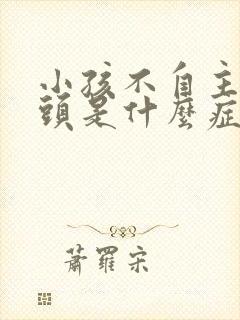 小孩不自主
頭是什麼症
蕭羅宋